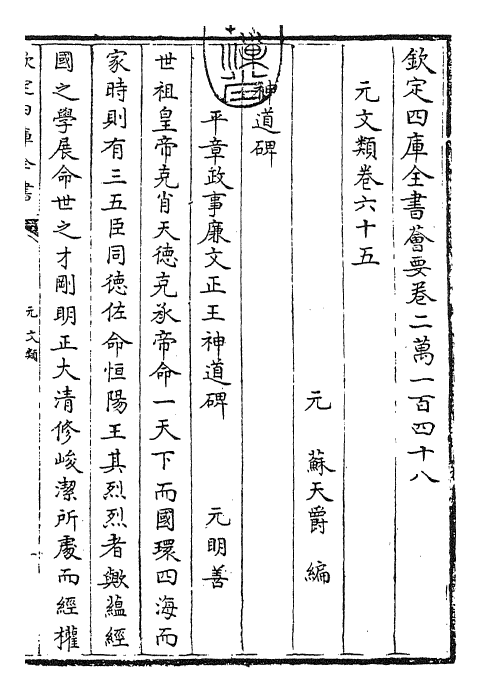 欽定四庫全書薈要卷二萬一百四十八
元文類卷六十五
元 蘇天爵 編
神道碑
平章政事廉文正王神道碑 元明善
世祖皇帝克肖天德克承帝命一天下而國環四海而
家時則有三五臣同德佐命恒陽王其烈烈者歟蘊經
國之學展命世之才剛明正大清修峻潔所處而經權
欽定四庫全書
元文類
一